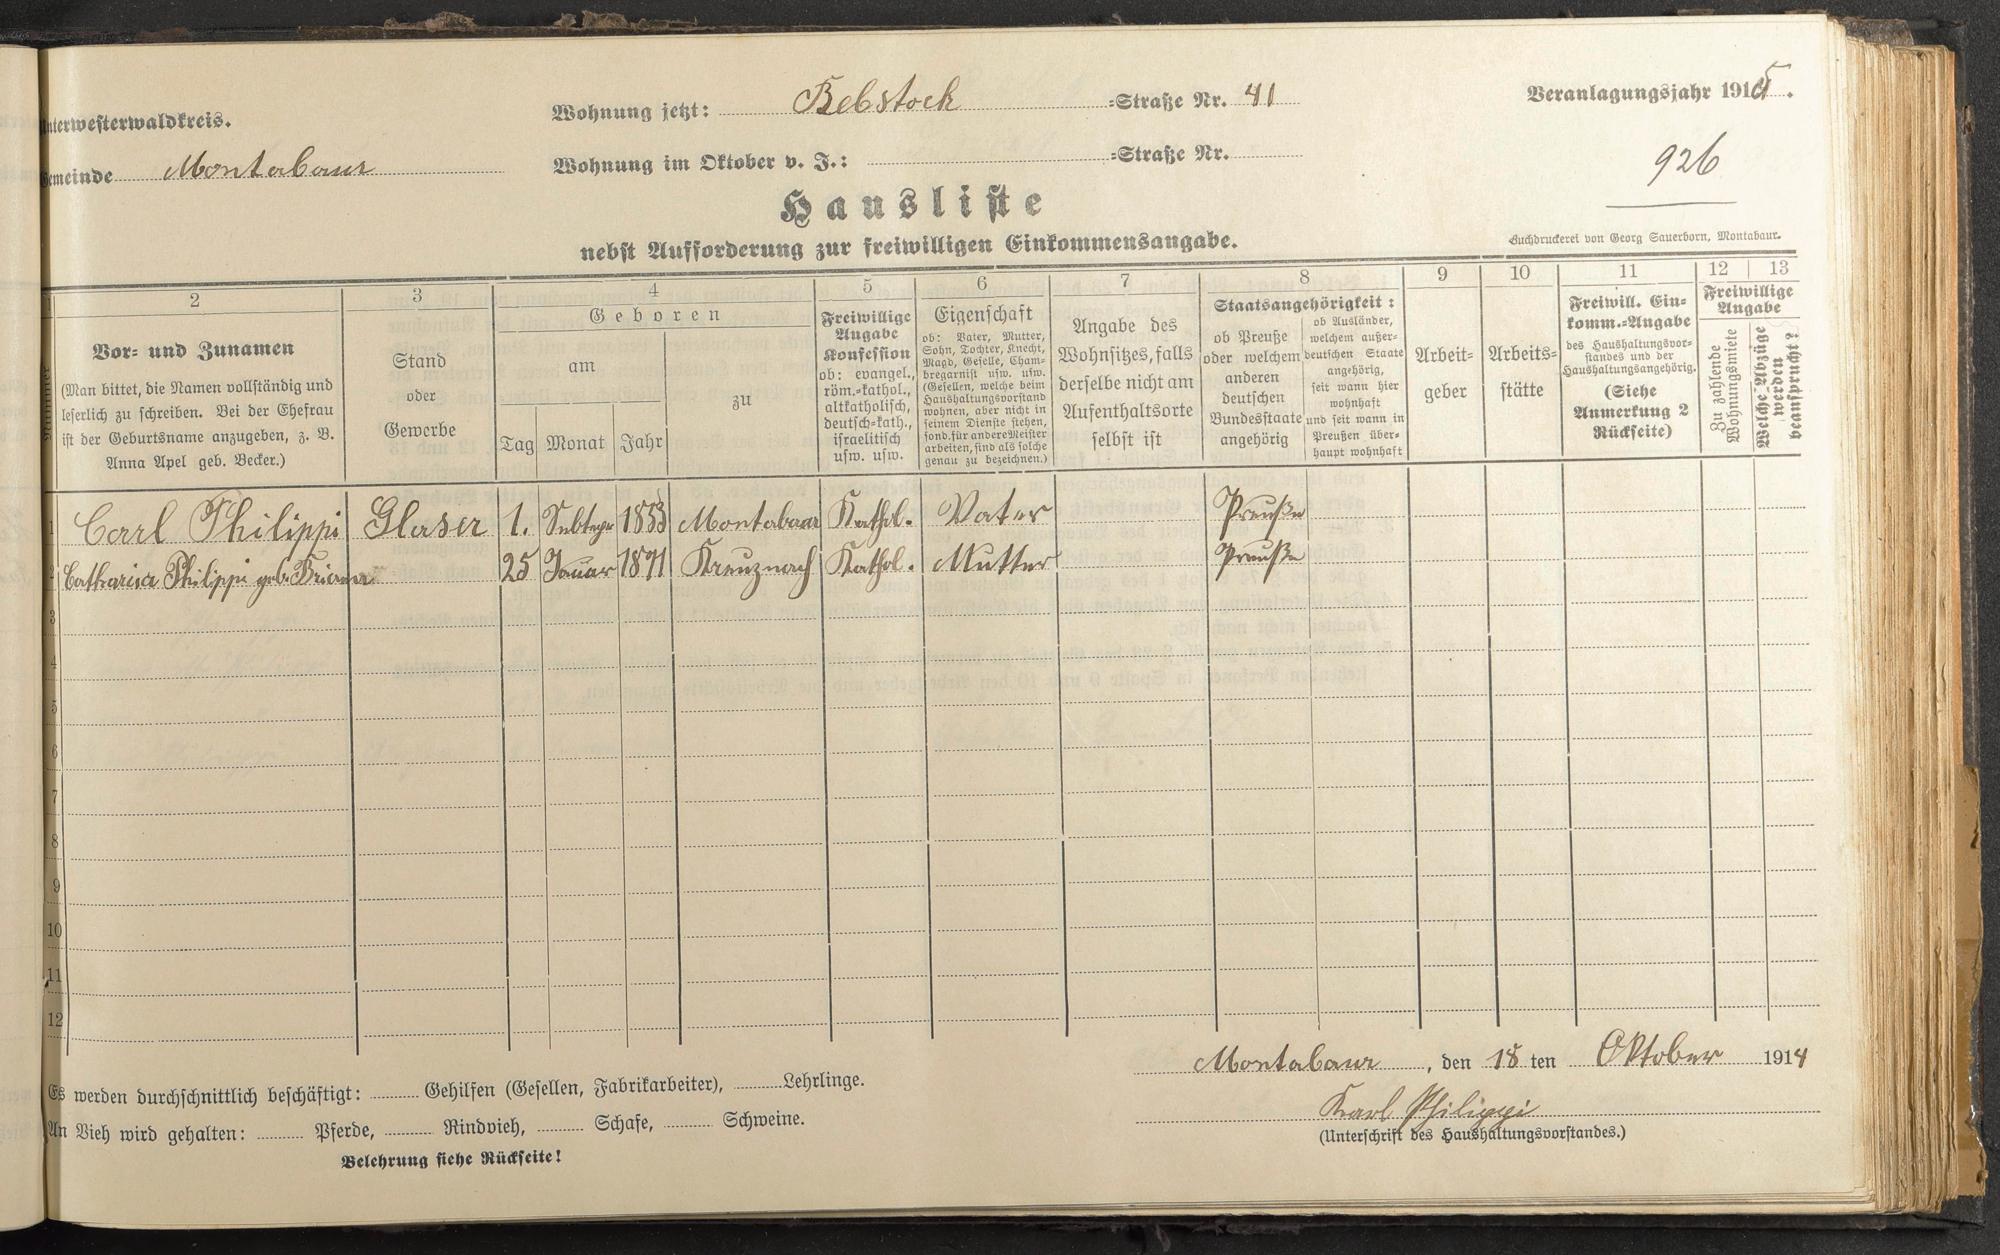 Unterwesterwaldkreis.
Gemeinde Montabaur
Wohnung jetzt: Rebstock =Straße Nr. 41
Wohnung im Oktober v. J.: =Straße Nr.
Veranlagungsjahr 1915.
926
Hausliste
nebst Aufforderung zur freiwilligen Einkommensangabe.
Buchdruckerei von Georg Sauerborn, Montabaur.
2 3 4 5 6 7 8 9 10 11 12 13
Nummer
Vor- und Zunamen
(Man bittet, die Namen vollständig und
leserlich zu schreiben. Bei der Ehefrau
ist der Geburtsname anzugeben, z. B.
Anna Apel geb. Becker.)
Stand
oder
Gewerbe
Geboren
am
Tag Monat Jahr
zu
Freiwillige
Angabe
Konfession
ob: evangel.,
röm.=kathol.,
altkatholisch,
deutsch=kath.,
israelitisch
usw. usw.
Eigenschaft
ob: Vater, Mutter,
Sohn, Tochter, Knecht,
Magd, Geselle, Cham-
bregarnist usw. usw.
(Gesellen, welche beim
Haushaltungsvorstand
wohnen, aber nicht in
seinem Dienste stehen,
sond. für andere Meister
arbeiten, sind als solche
genau zu bezeichnen.)
Angabe des
Wohnsitzes, falls
derselbe nicht am
Aufenthaltsorte
selbst ist
Staatsangehörigkeit:
ob Preuße
oder welchem
anderen
deutschen
Bundesstaate
angehörig
ob Ausländer,
welchem außer-
deutschen Staate
angehörig,
seit wann hier
wohnhaft
und seit wann in
Preußen über-
haupt wohnhaft
Arbeit-
geber
Arbeits-
stätte
Freiwill. Ein-
komm.=Angabe
des Haushaltungsvor-
standes und der
Haushaltungsangehörig.
(Siehe
Anmerkung 2
Rückseite)
Freiwillige
Angabe
Zu zahlende
Wohnungsmiete
Welche Abzüge
werden
beansprucht?
1 Carl Philippi Glaser 1. 1853 Montabaur Kathol. Vater Preuße
2 Catharina Philippi geb. 25 Januar 1871 Kreuznach Kathol. Mutter Preuße
3
4
5
6
7
8
9
10
11
12
Es werden durchschnittlich beschäftigt: Gehilfen (Gesellen, Fabrikarbeiter), Lehrlinge.
An Vieh wird gehalten: Pferde, Rindvieh, Schafe, Schweine.
Belehrung siehe Rückseite!
Montabaur, den 18 ten Oktober 1914
Karl Philippi
(Unterschrift des Haushaltungsvorstandes.)